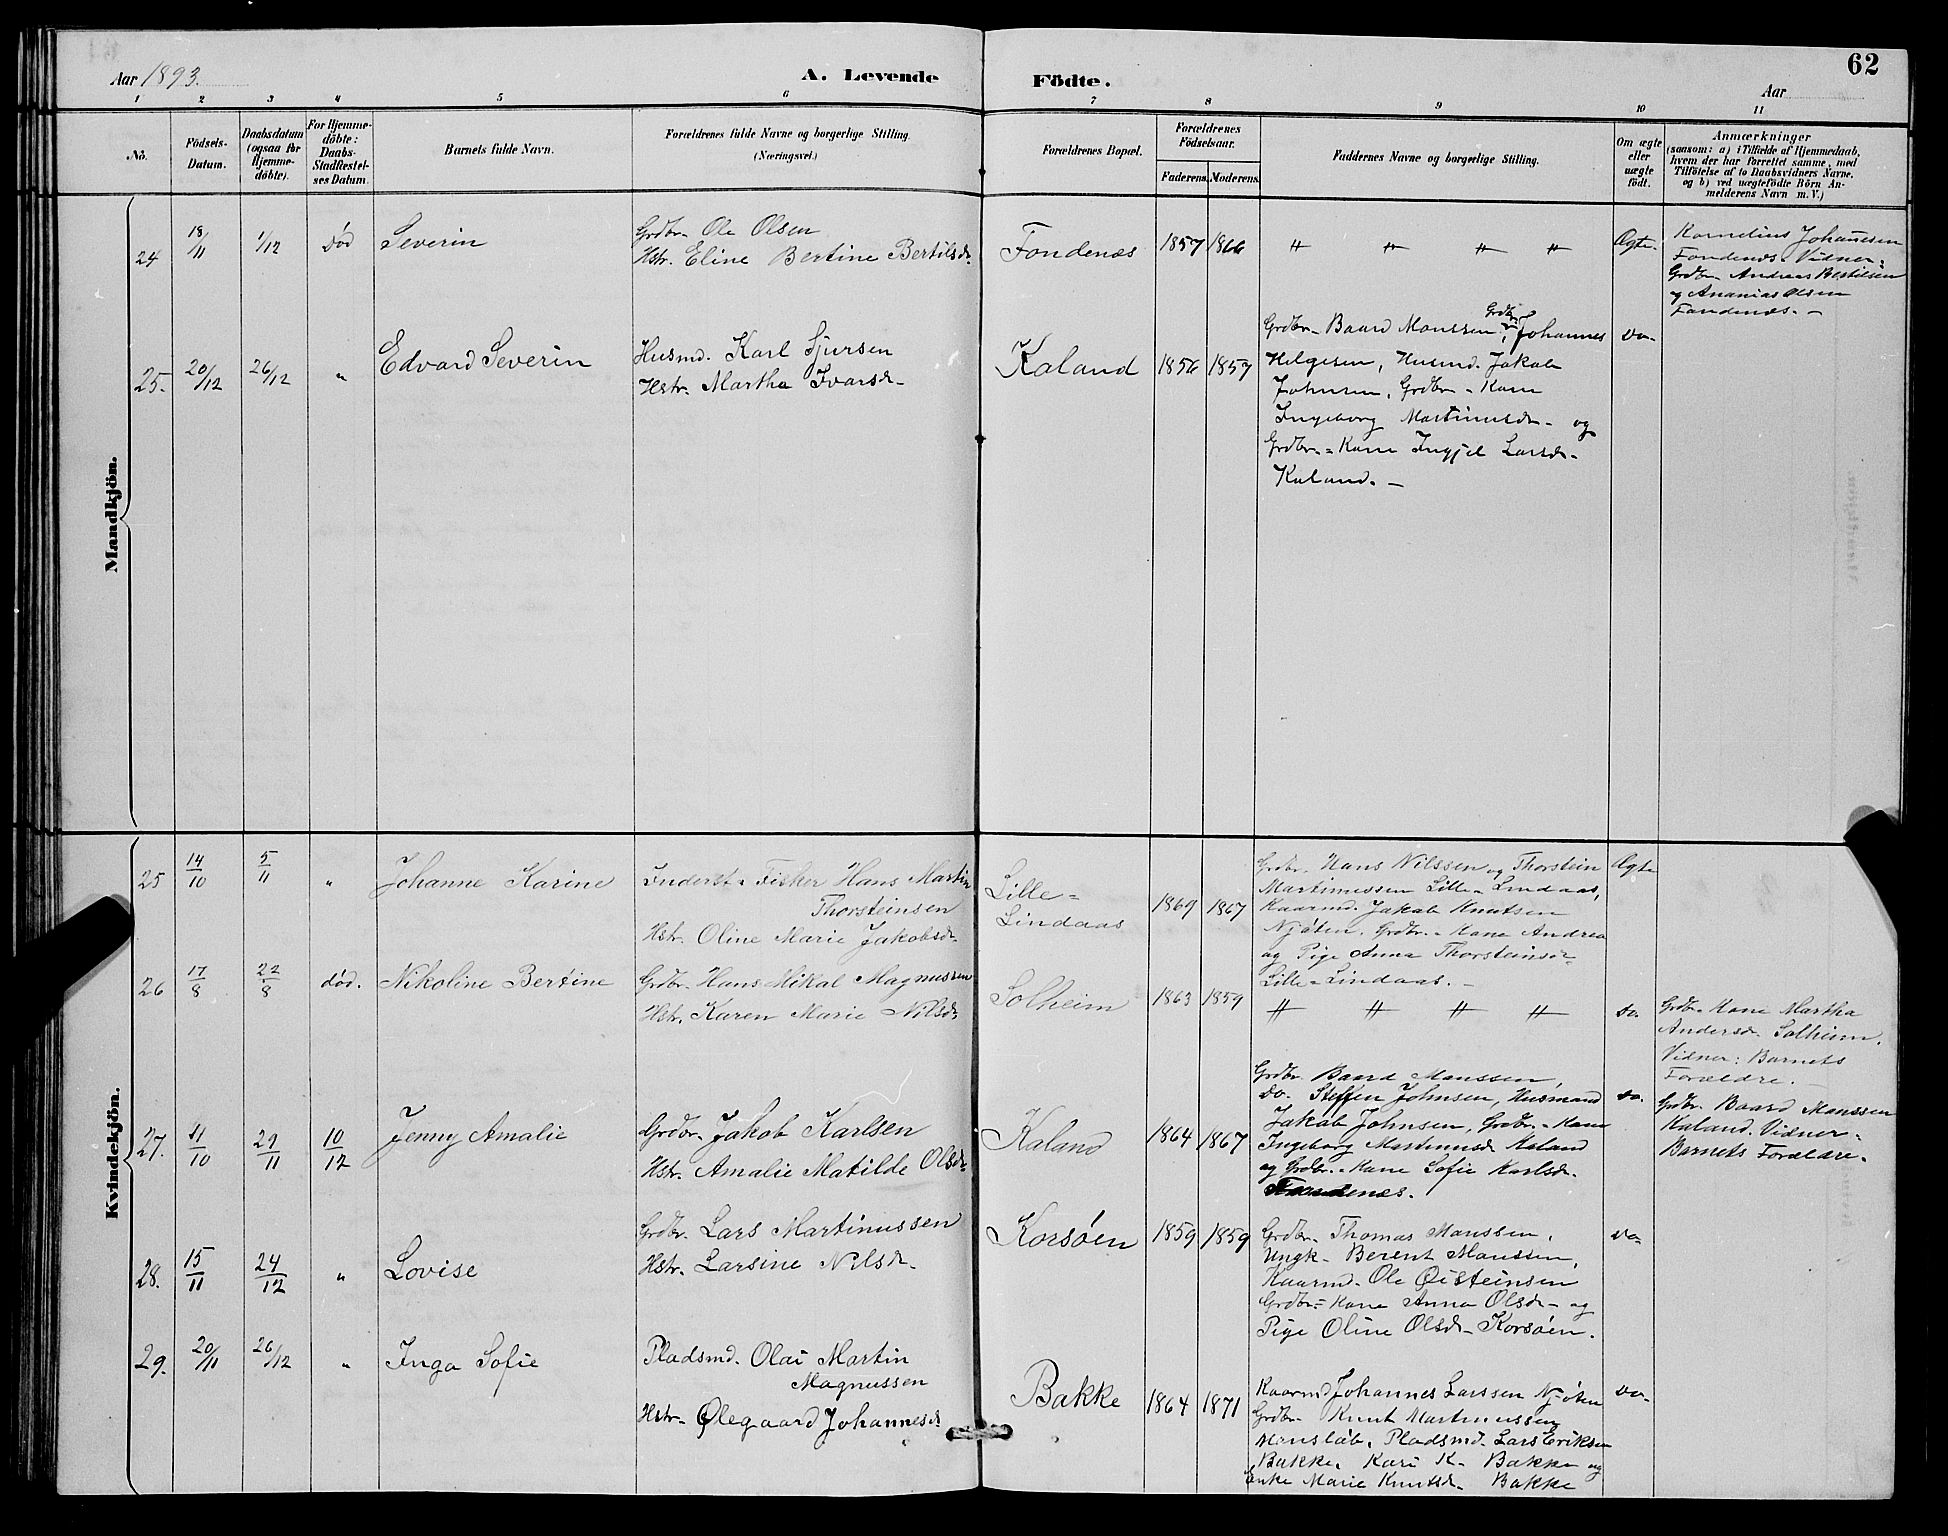 Aar 1893.
A. Levende
Födte.
Aar
62
1
2
3
4
5
6
7
8
9
10
11
No.
Födsels-
Datum.
Daabsdatum
(ogsaa for
Hjemme-
döbte).
For Hjemme-
döbte:
Daabs-
Stadfæstel-
ses Datum.
Barnets fulde Navn.
Forældrenes fulde Navne og borgerlige Stilling.
(Næringsvei.)
Forældrenes Bopæl.
Forældrenes
Födselsaar.
Faderens.
Moderens.
Faddernes Navne og borgerlige Stilling.
Om ægte
eller
uægte
födt.
Anmærkninger
(saasom: a) i Tilfælde af Hjemmedaab,
hvem der har forrettet samme, med
Tilföielse af to Daabsvidners Navne,
og b) ved uægtefödte Börn An-
melderens Navn m. V.)
Mandkjön.
24
18/11
1/12
død
Severin
Grdbr. Ole Olsen
Hstr. Eline Bertine Bertilsdr.
Fondenæs
1857
1866
〃 〃 〃 〃
Ægte.
Kornelius Johannesen
Fondenæs. Vidner:
Grdbr. Andreas Bertilsen
og Ananias Olsen
Fondenæs. —
25.
20/12
26/12
„
Edvard Severin
Husmd. Karl Sjursen
Hstr. Martha Ivarsdr.
Kaland
1856
1857
Grdbr. Baard Monssen, Grdbr. Johannes
Helgesen, Husmd. Jakob
Johnsen, Grdbr. - Kone
Ingeborg Martinusdr. og
Grdbr. - Kone Ingjel Larsdr.
Kaland. —
do.
Kvindekjön.
25
14/10
5/11
„
Johanne Karine
Inderst & Fisker Hans Martin
Thorsteinsen
Hstr. Oline Marie Jakobsdr.
Lille-
Lindaas
1869
1867
Grdbr. Hans Nilssen og Thorstein
Martinussen Lille-Lindaas,
Kaarmd. Jakob Knutsen
Njøten. Grdbr. - Kone Andrea
og Pige Anna Thorsteinsdr.
Lille-Lindaas. —
Ægte
26
17/8
22/8
død.
Nikoline Bertine
Grdbr. Hans Mikal Magnussen
Hstr. Karen Marie Nilsdr.
Solheim
1863
1859
〃 〃 〃 〃
do.
Grdbr. Kone Martha
Andersdr. Solheim.
Vidner: Barnets
Forældre. —
27.
11/10
29/11
10/12
Jenny Amalie
Grdbr. Jakob Karlsen
Hstr. Amalie Matilde Olsdr.
Kaland
1864
1867
Grdbr. Baard Monssen,
do. Steffen Johnsen, Husmand
Jakob Johnsen, Grdbr. - Kone
Ingeborg Martinusdr. Kaland
og Grdbr. - Kone Sofie Karlsdr.
Fondenæs.
do.
Grdbr. Baard Monssen
Kaland. Vidner:
Barnets Forældre.
28.
15/11
24/12
„
Lovise
Grdbr. Lars Martinussen
Hstr. Larsine Nilsdr.
Korsøen
1859
1859
Grdbr. Thomas Monssen,
Ungk. Berent Monssen,
Kaarmd. Ole Øisteinsen
Grdbr. - Kone Anna Olsdr. og
Pige Oline Olsdr. Korsøen.
do.
29.
20/11
26/12
„
Inga Sofie
Pladsmd. Olai Martin
Magnussen
Hstr. Ølegaard Johannesdr.
Bakke
1864
1871
Kaarmd. Johannes Larssen Njøten
Grdbr. Knut Martinussen
Monsløb, Pladsmd. Lars Eriksen
Bakke, Kari K. Bakke og
Enke Marie Knutsdr. Bakke
do.